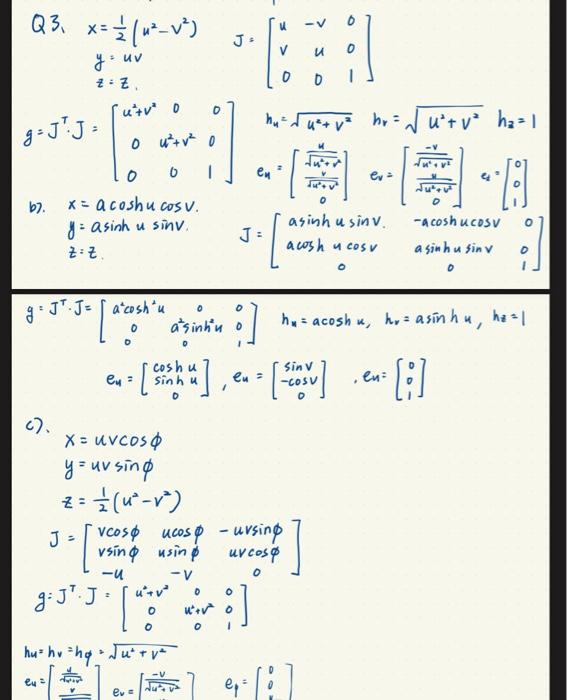 Q3. x = ½(u² - v²)
y = uv
z = z.
J = [u -v 0
v u 0
0 0 1]
g = Jᵀ·J = [u²+v² 0 0
0 u²+v² 0
0 0 1]
hᵤ = √(u²+v²) hᵥ = √(u²+v²) h_z = 1
eᵤ = [u/√(u²+v²)
v/√(u²+v²)
0]
eᵥ = [-v/√(u²+v²)
u/√(u²+v²)
0]
e_z = [0
0
1]
b). x = a cosh u cos v.
y = a sinh u sin v.
z = z.
J = [a sinh u sin v. -a cosh u cos v 0
a cosh u cos v a sinh u sin v 0
0 0 1]
g = Jᵀ·J = [a²cosh²u 0 0
0 a²sinh²u 0
0 0 1]
hᵤ = a cosh u, hᵥ = a sinh u, h_z = 1
eᵤ = [cosh u
sinh u
0]
, eᵤ = [sin v
-cos v
0]
, eᵤ = [0
0
1]
c).
x = uv cos ϕ
y = uv sin ϕ
z = ½(u² - v²)
J = [v cos ϕ u cos ϕ -uv sin ϕ
v sin ϕ u sin ϕ uv cos ϕ
-u -v 0]
g = Jᵀ·J = [u²+v² 0 0
0 u²+v² 0
0 0 1]
hᵤ = hᵥ = hϕ = √(u²+v²)
eᵤ = [u/√(u²+v²)
v
eᵥ = [-v/√(u²+v²)
eϕ = [0
0